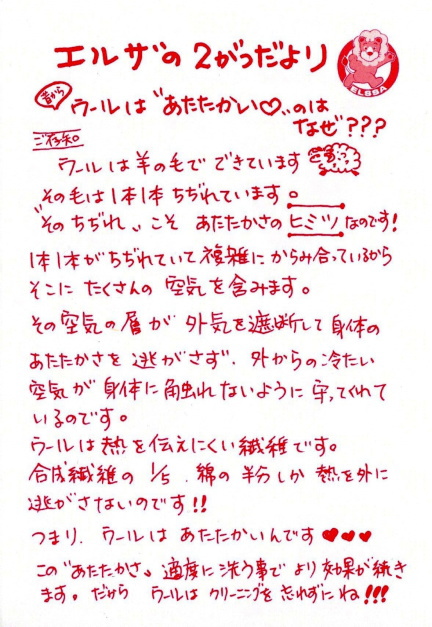 エルザの2がつだより
ELESA
昔から
ウールは〝あたたかい♡〟のは
なぜ???
ご存知。
ウールは羊の毛でできています
その毛は1本1本ちぢれています。
〝そのちぢれ〟こそ あたたかさのヒミツなのです!
1本1本がちぢれていて複雑にからみ合っているから
そこにたくさんの空気を含みます。
その空気の層が外気を遮断して身体の
あたたかさを逃がさず、外からの冷たい
空気が身体に触れないように守ってくれて
いるのです。
ウールは熱を伝えにくい繊維です。
合成繊維の1/5、綿の半分しか熱を外に
逃がさないのです!!
つまり、ウールはあたたかいんです♥♥♥
この〝あたたかさ〟適度に洗う事でより効果が続き
ます。だから ウールはクリーニングを忘れずにね!!!